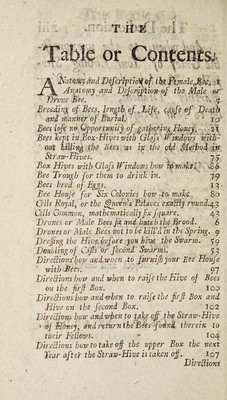 THE
Table or Contents.
ANatomy and Description of the Female Bee, 1
Anatomy and Description of the Male or
Drone Bee. 5
Breeding of Bees, length of Life, cause of Death
and manner of Burial. 10
Bees lose no Opportunity of gathering Honey. 21
Bees kept in Box-Hives with Glass Windows with-
out killing the Bees as in the old Method in
Straw-Hives. 75
Box Hives with Glass Windows how to make. 66
Bee Trough for them to drink in. 79
Bees breed of Eggs. 12
Bee House for Six Colonies how to make. 80
Cells Royal, or the Queen's Palaces exactly round. 43
Cells Common, mathematically six square. 42
Drones or Male Bees sit and hatch the Brood. 6
Drones or Male Bees not to be kill'd in the Spring. 9
Dressing the Hive before you hive the Swarm. 59
Doubling of Casts or second Swarms. 52
Directions how and when to furnish your Bee House
with Bees. 97
Directions how and when to raise the Hive of Bees
on the first Box. 100
Directions how and when to raise the first Box and
Hive on the second Box. 102
Directions how and when to take off the Straw-Hive
of Honey, and return the Bees found therein to
their Fellows. 104
Directions how to take off the upper Box the next
Year after the Straw-Hive is taken off. 107
Directions